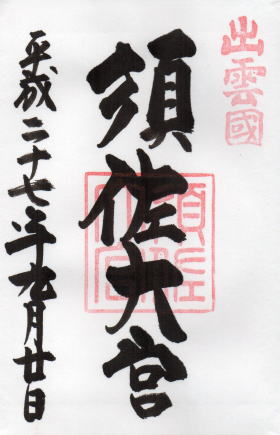 出雲國
須佐大宮
平成二十七年九月廿日